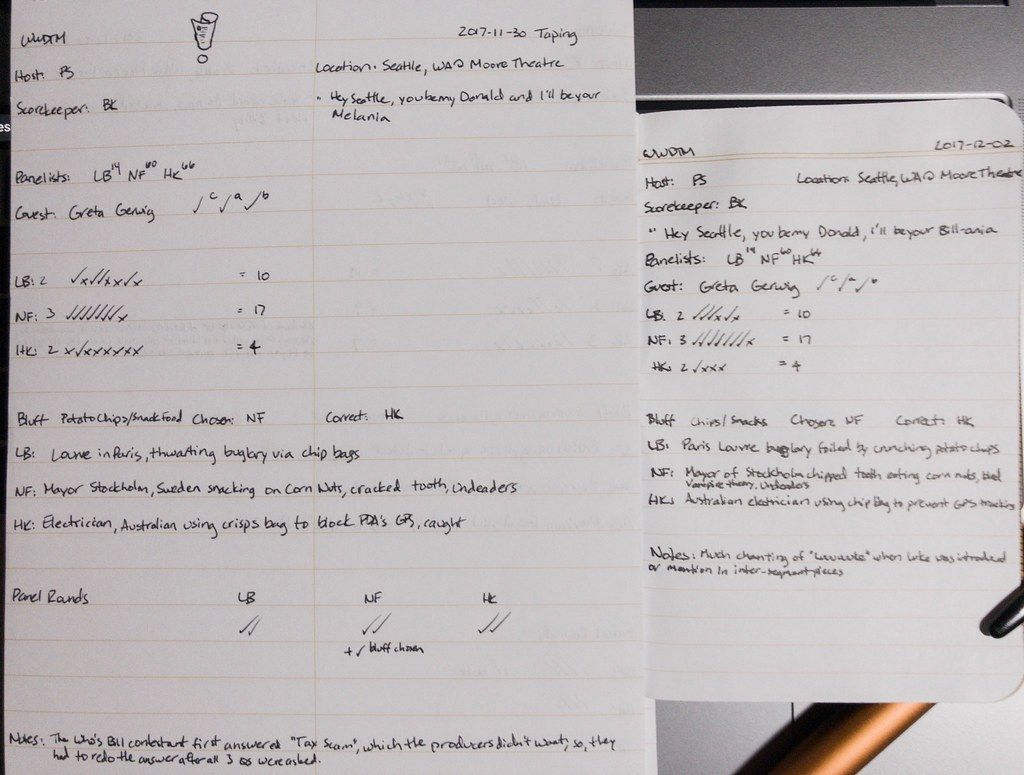 WWDTM
2017-11-30 Taping
Host: PS
Location: Seattle, WA @ Moore Theatre
Scorekeeper: BK
" Hey Seattle, you be my Donald and I'll be your
Melania
Panelists: LB¹⁴ NF⁶⁰ HK⁶⁶
Guest: Greta Gerwig ✓ᶜ ✓ᵃ ✓ᵇ
LB: 2 ✓x✓✓xx✓x = 10
NF: 3 ✓✓✓✓✓✓✓x = 17
HK: 2 x✓xxxxxx = 4
Bluff Potato Chips/Snack Food Chosen: NF Correct: HK
LB: Louvre in Paris, thwarting buglary via chip bags
NF: Mayor Stockholm, Sweden snacking on Corn Nuts, cracked tooth, Undeaders
HK: Electrician, Australian using crisps bag to block PDA's GPS, caught
Panel Rounds LB NF HK
✓✓ ✓✓ ✓✓
+ ✓ bluff chosen
Notes: The Who's Bill contestant first answered "Tax Scam", which the producers didn't want, so, they
had to redo the answer after all 3 Qs were asked.
es
WWDTM 2017-12-02
Host: PS Location: Seattle, WA @ Moore Theatre
Scorekeeper: BK
" Hey Seattle, you be my Donald, I'll be your Bill-ania
Panelists: LB¹⁴ NF⁶⁰ HK⁶⁶
Guest: Greta Gerwig ✓ᶜ ✓ᵃ ✓ᵇ
LB: 2 ✓✓✓x✓x = 10
NF: 3 ✓✓✓✓✓✓✓x = 17
HK: 2 ✓xxx = 4
Bluff Chips/Snacks Chosen: NF Correct: HK
LB: Paris Louvre buglary foiled by crunching potato chips
NF: Mayor of Stockholm chipped tooth eating corn nuts,
Vampire theory, Undeaders
HK: Australian electrician using chip bag to prevent GPS tracking
Notes: Much chanting of "Luuuuke" when Luke was introduced
or mention in inter-segment pieces